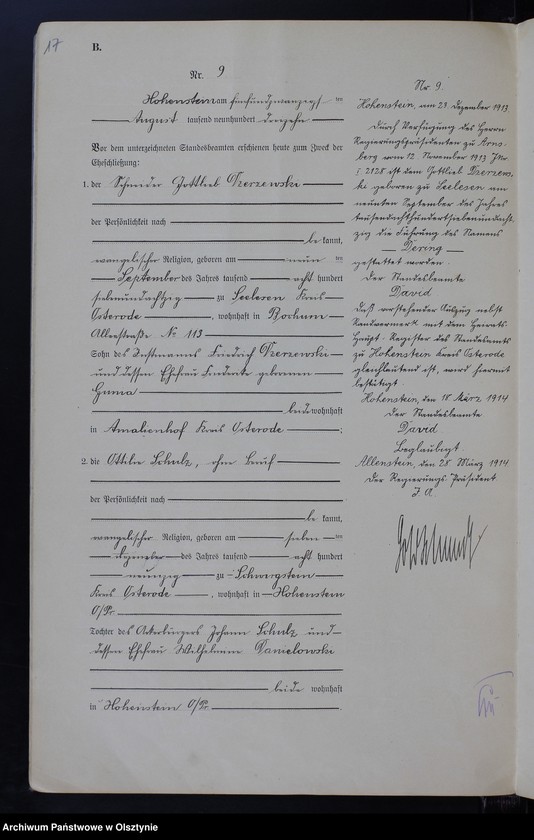 17
B.
Nr. 9
Hohenstein am fünfundzwanzigs ten
August tausend neunhundert dreizehn
Vor dem unterzeichneten Standesbeamten erschienen heute zum Zweck der
Eheschließung:
1. der Schneider Gottlieb
der Persönlichkeit nach
be kannt,
evangelischer Religion, geboren am neun ten
September des Jahres tausend acht hundert
siebenundachtzig zu Seelesen Kreis
Osterode, wohnhaft in Bochum
Alleestraße No 113
Sohn des Instmanns Friedrich
und dessen Ehefrau geborenen
beide wohnhaft
in Amalienhof Kreis Osterode;
2. die Ottilie Schulz, ohne Beruf
der Persönlichkeit nach
be kannt,
evangelischer Religion, geboren am sieben ten
Dezember des Jahres tausend acht hundert
neunzig zu
Kreis Osterode, wohnhaft in Hohenstein
O/Pr.
Tochter des Ackerbürgers Johann Schulz und
dessen Ehefrau Wilhelmine
beide wohnhaft
in Hohenstein O/Pr.
Nr. 9.
Hohenstein, am 23. Dezember 1913
Durch Verfügung des Herrn
Regierungspräsidenten zu Arns-
berg vom 12. November 1913
2128 ist dem Gottlieb
geboren zu Seelesen am
neunten September des Jahres
tausendachthundertsiebenundacht-
zig die Führung des Namens
Dering
gestattet worden.
Der Standesbeamte
David
Daß vorstehender Auszug nebst
Randvermerk mit dem Heirats-
Haupt-Register des Standesamts
zu Hohenstein Kreis Osterode
gleichlautend ist, wird hiermit
bestätigt.
Hohenstein, den 18 März 1914
Der Standesbeamte
David
Beglaubigt
Allenstein, den 28 März 1914
Der Regierungs-Präsident
J. A.
Archiwum Państwowe w Olsztynie